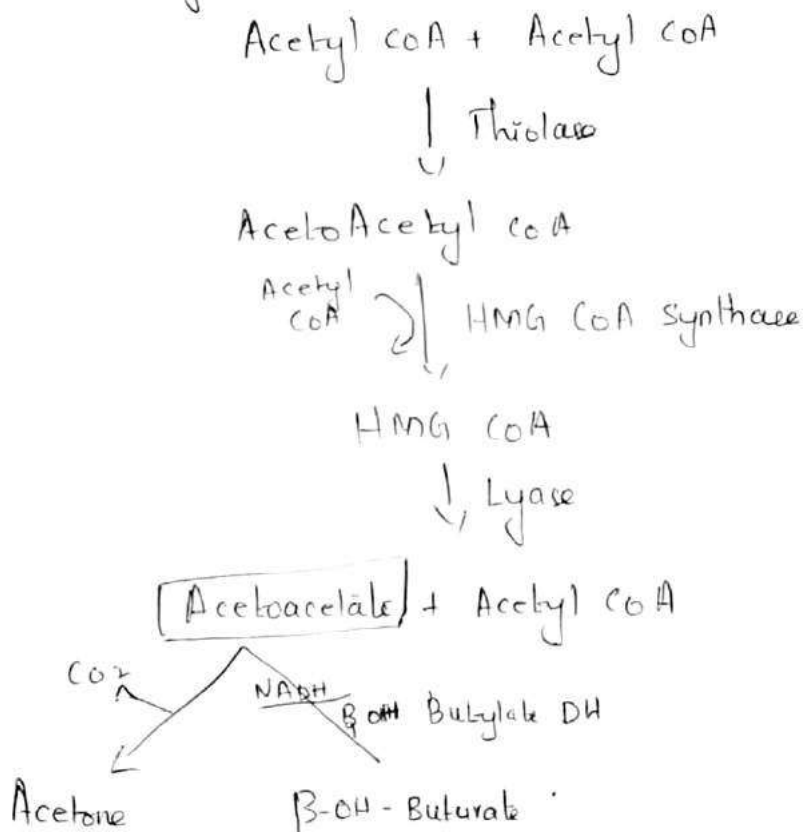 Acetyl CoA + Acetyl CoA
Thiolase
AcetoAcetyl CoA
Acetyl
CoA
HMG CoA Synthase
HMG CoA
Lyase
Acetoacetate + Acetyl CoA
CO2
NADH
β OH Butylate DH
Acetone β-OH-Buturate